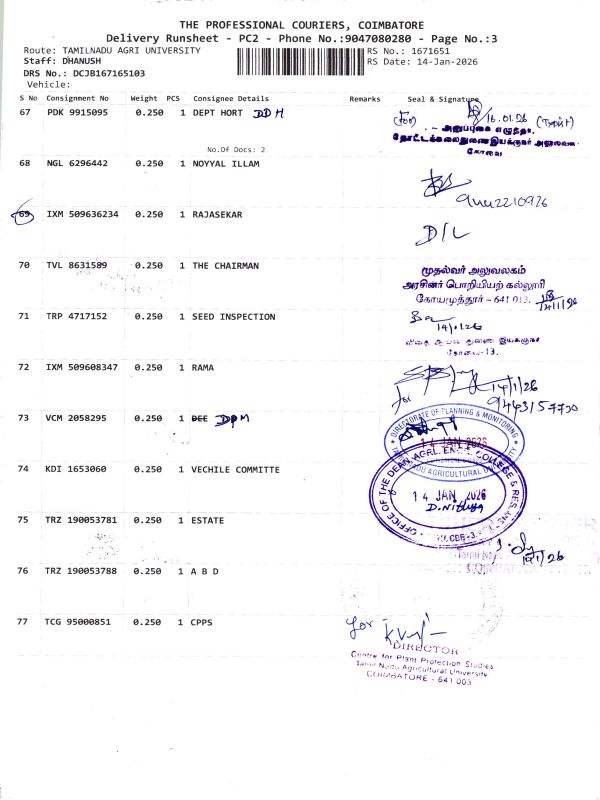 THE PROFESSIONAL COURIERS, COIMBATORE
Delivery Runsheet - PC2 - Phone No.:9047080280 - Page No.:3
Route: TAMILNADU AGRI UNIVERSITY
RS No.: 1671651
Staff: DHANUSH
RS Date: 14-Jan-2026
DRS No.: DCJB167165103
Vehicle:
S No Consignment No Weight PCS Consignee Details Remarks Seal & Signature
67 PDK 9915095 0.250 1 DEPT HORT DDH
16.01.26
No.Of Docs: 2
68 NGL 6296442 0.250 1 NOYYAL ILLAM
69 IXM 509636234 0.250 1 RAJASEKAR
D/L
70 TVL 8631589 0.250 1 THE CHAIRMAN
முதல்வர் அலுவலகம்
அரசினர் பொறியியற் கல்லூரி
கோயமுத்தூர் - 641 013.
14/1/26
71 TRP 4717152 0.250 1 SEED INSPECTION
14/01/26
72 IXM 509608347 0.250 1 RAMA
for
14/1/26
73 VCM 2058295 1 DEE DPM
DIRECTORATE OF PLANNING & MONITORING
14 JAN 2026
74 KDI 1653060 0.250 1 VECHILE COMMITTE
OFFICE OF THE DEAN, AGRL. ENGG. COLLEGE & RES.
14 JAN 2026
D. Nithya
75 TRZ 190053781 0.250 1 ESTATE
76 TRZ 190053788 0.250 1 A B D
77 TCG 95000851 0.250 1 CPPS
for
DIRECTOR
Centre for Plant Protection Studies
Tamil Nadu Agricultural University
COIMBATORE - 641 003